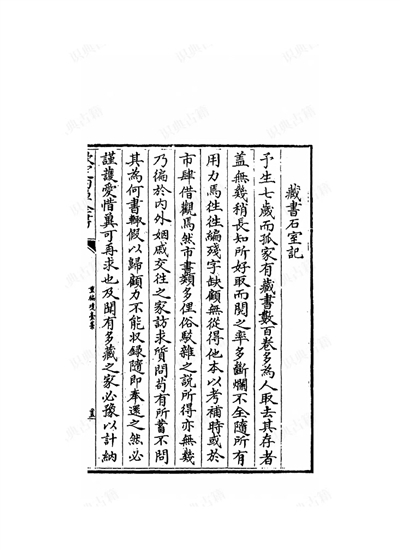 藏書石室記
予生七歲而孤家有藏書數百卷多為人取去其存者
蓋無幾稍長知所好取而閱之率多斷爛不全隨所有
用力焉往往編殘字缺顧無從得他本以考補時或於
市肆借觀焉然市書類多俚俗駁雜之說所得亦無幾
乃徧於內外姻戚交往之家訪求質問苟有所蓄不問
其為何書輒假以歸顧力不能収録隨即奉還之然必
謹䕶愛惜冀可再求也及聞有多藏之家必豫以計納
重編瓊臺藁